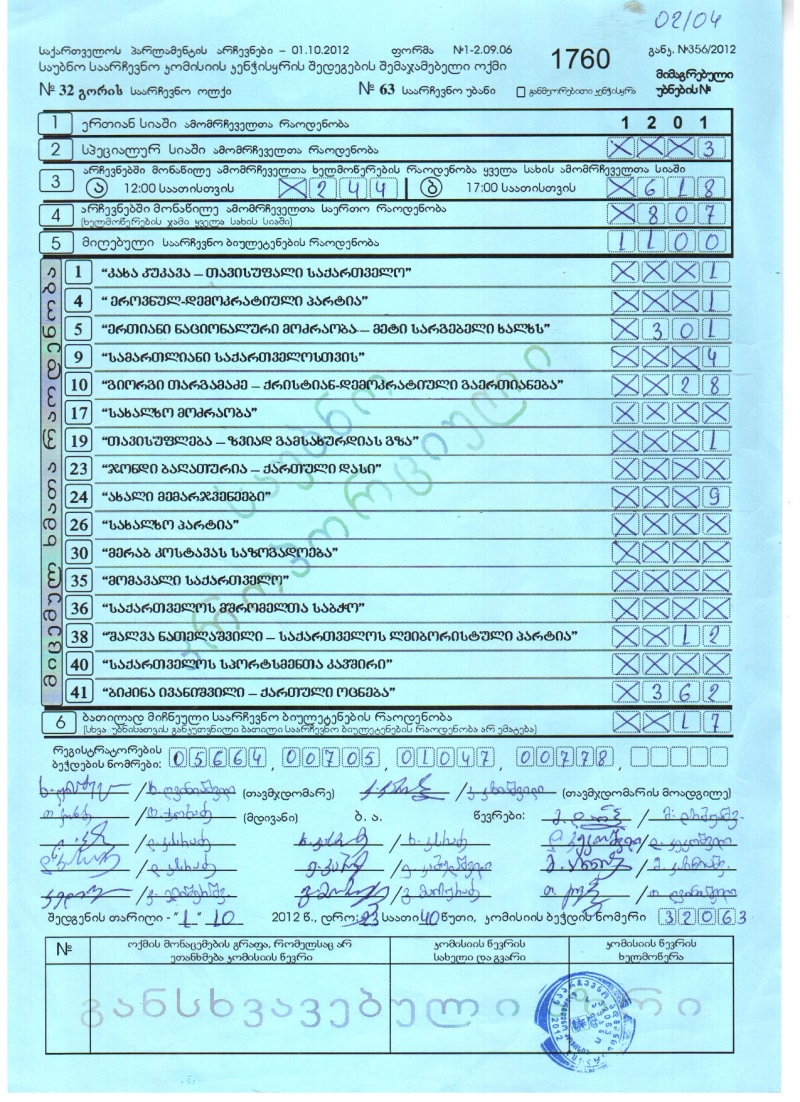 02/04
საქართველოს პარლამენტის არჩევნები – 01.10.2012 ფორმა №1-2.09.06 1760 განკ. №356/2012
საუბნო საარჩევნო კომისიის კენჭისყრის შედეგების შემაჯამებელი ოქმი მიმაგრებული
№ 32 გორის საარჩევნო ოლქი № 63 საარჩევნო უბანი განმეორებითი კენჭისყრა უბნების №
1 ერთიან სიაში ამომრჩეველთა რაოდენობა 1 2 0 1
2 სპეციალურ სიაში ამომრჩეველთა რაოდენობა X X X 3
3 არჩევნებში მონაწილე ამომრჩეველთა ხელმოწერების რაოდენობა ყველა სახის ამომრჩეველთა სიაში
ა 12:00 საათისთვის X 2 4 4 ბ 17:00 საათისთვის X 6 1 8
4 არჩევნებში მონაწილე ამომრჩეველთა საერთო რაოდენობა X 8 0 7
(ხელმოწერების ჯამი ყველა სახის სიაში)
5 მიღებული საარჩევნო ბიულეტენების რაოდენობა 1 1 0 0
მიცემულ ხმათა რაოდენობა
1 "კახა კუკავა – თავისუფალი საქართველო" X X X 1
4 "ეროვნულ-დემოკრატიული პარტია" X X X 1
5 "ერთიანი ნაციონალური მოძრაობა – მეტი სარგებელი ხალხს" X 3 0 1
9 "სამართლიანი საქართველოსთვის" X X X 4
10 "გიორგი თარგამაძე – ქრისტიან-დემოკრატიული გაერთიანება" X X 2 8
17 "სახალხო მოძრაობა" X X X X
19 "თავისუფლება – ზვიად გამსახურდიას გზა" X X X 1
23 "ჯონდი ბაღათურია – ქართული დასი" X X X X
24 "ახალი მემარჯვენეები" X X X 9
26 "სახალხო პარტია" X X X X
30 "მერაბ კოსტავას საზოგადოება" X X X X
35 "მომავალი საქართველო" X X X X
36 "საქართველოს მშრომელთა საბჭო" X X X X
38 "შალვა ნათელაშვილი – საქართველოს ლეიბორისტული პარტია" X X 1 2
40 "საქართველოს სპორტსმენთა კავშირი" X X X X
41 "ბიძინა ივანიშვილი – ქართული ოცნება" X 3 6 2
საუბნო
პროპორციული
6 ბათილად მიჩნეული საარჩევნო ბიულეტენების რაოდენობა X X 1 7
(სხვა უბნისათვის განკუთვნილი ბათილი საარჩევნო ბიულეტენების რაოდენობა არ ემატება)
რეგისტრატორების
ბეჭდების ნომრები: 05664, 00705, 01047, 00778,
(თავმჯდომარე) (თავმჯდომარის მოადგილე)
(მდივანი) ბ. ა. წევრები:
შედგენის თარიღი - "1" 10 2012 წ., დრო: 23 საათი 40 წუთი, კომისიის ბეჭდის ნომერი 32063
№ ოქმის მონაცემების გრაფა, რომელსაც არ ეთანხმება კომისიის წევრი კომისიის წევრის სახელი და გვარი კომისიის წევრის ხელმოწერა
განსხვავებული აზრი